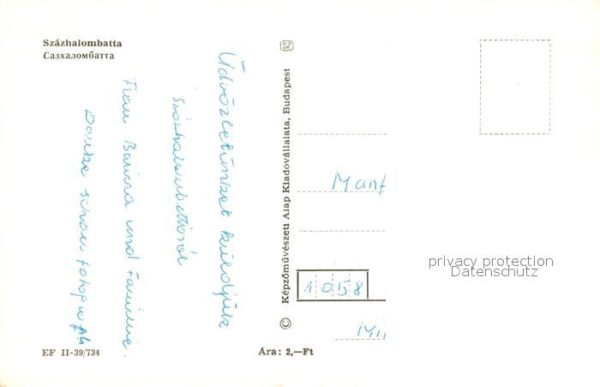 Százhalombatta
Сазхаломбатта
Üdvözletünket küldjük
Százhalombattáról
Frau Baricza und Familie.
Danke schön fotograph
EF II-39/734
Képzőművészeti Alap Kiadóvállalata, Budapest
Ára: 2,—Ft
1058
privacy protection
Datenschutz